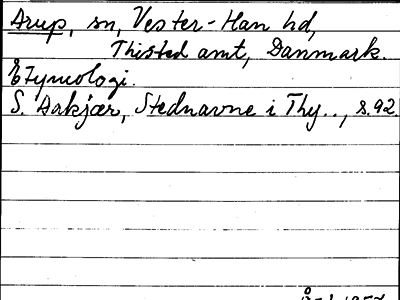 Arup, sn, Vester-Han hd,
Thisted amt, Danmark.
Etymologi.
S. Aakjær, Stednavne i Thy.., s.92.